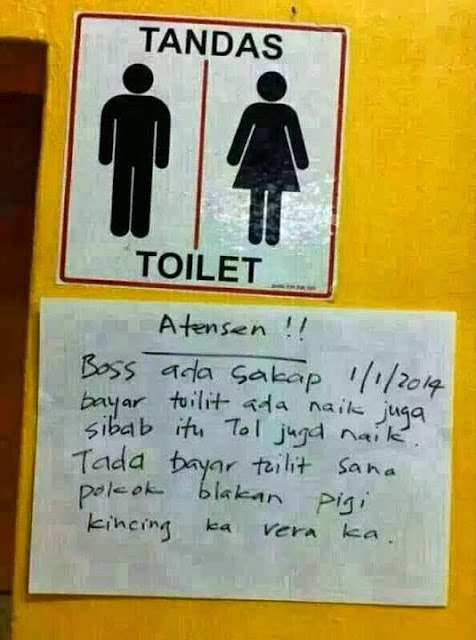 TANDAS
TOILET
Atensen !!
Boss ada sakap 1/1/2014
bayar tuilit ada naik juga
sibab itu Tol juga naik.
Tada bayar tuilit sana
pokok blakan pigi
kincing ka vera ka.